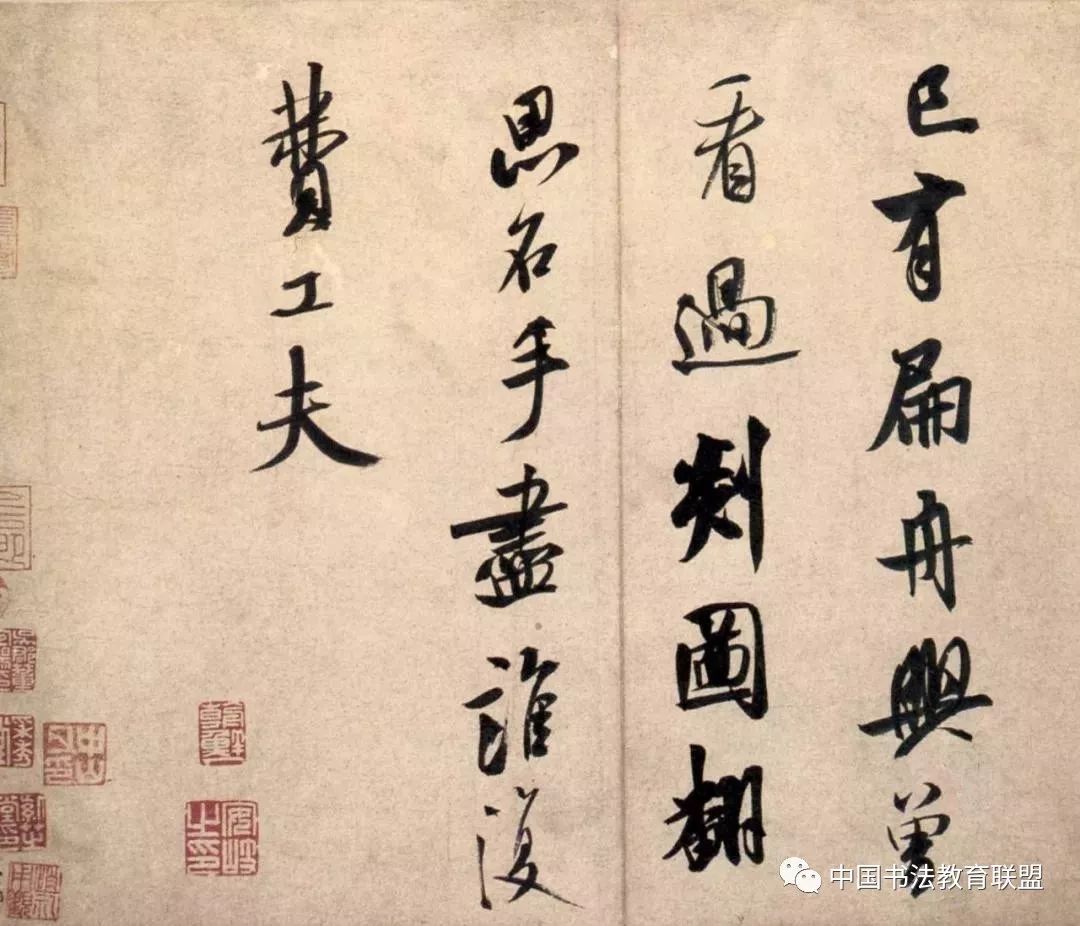 已有扁舟興曾
看過剡圖翻
思名手盡誰復
費工夫
中国书法教育联盟